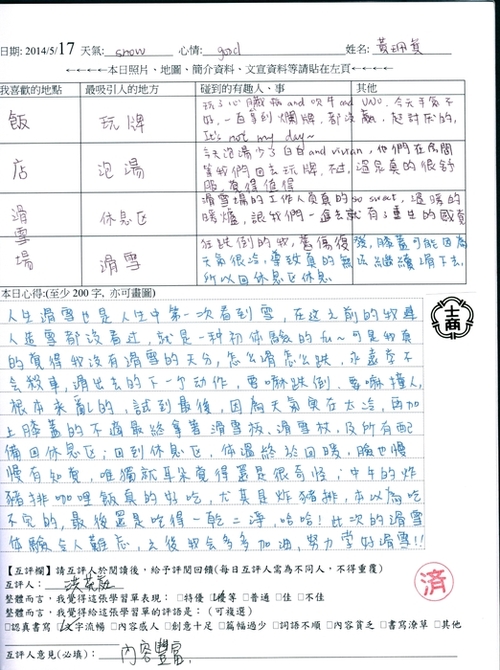 日期: 2014/5/17 天氣: snow 心情: good 姓名: 黃珮
←←←←←本日照片、地圖、簡介資料、文宣資料等請貼在左頁←←←←←
我喜歡的地點 最吸引人的地方 碰到的有趣人、事 其他
飯 玩牌
玩了心臟病and吹牛and UNO. 今天手氣不
好,一直拿到爛牌,都沒贏,超討厭的,
It's not my day~
店 泡湯
今天泡湯少了白白and vivian,他們在房間
等我們回去玩牌,不過,還是真的很舒
服,覺得值得
滑 休息區
滑雪場的工作人員真的so sweet,溫暖的
暖爐,讓我們一進去就有了重生的感覺
雪
場 滑雪
狂跌倒的我,舊傷復發,膝蓋可能因為
天氣很冷,導致真的無法繼續滑下去,
所以回休息區休息.
本日心得:(至少 200 字, 亦可畫圖)
人生滑雪也是人生中第一次看到雪,在這之前的我連
人造雪都沒看過,就是一種初体驗的私~可是我真
的覺得我沒有滑雪的天分,怎么滑怎么跌,永遠都不
會殺車,滑出去的下一个动作,要嘛跌倒,要嘛撞人,
根本來亂的,試到最後,因為天氣實在太冷,再加
上膝蓋的不適最終拿著滑雪板、滑雪杖、及所有配
備回休息區;回到休息區,体溫終於回暖,臉也慢
慢有知覺,唯獨就耳朵覺得還是很奇怪;中午的炸
豬排咖哩飯真的好吃,尤其是炸豬排,本以為吃
不完的,最後還是吃得一乾二淨,哈哈!此次的滑雪
体驗令人難忘,之後我會多多加油,努力學好滑雪!!
士商
【互評欄】請互評人於閱讀後,給予評閱回饋(每日互評人需為不同人,不得重覆)
互評人:
整體而言,我覺得這張學習單表現:□特優 □優等 □普通 □佳 □不佳
整體而言,我覺得給這張學習單的評語是:(可複選)
□認真書寫 □文字流暢 □內容感人 □創意十足 □篇幅過少 □詞語不順 □內容貧乏 □書寫潦草 □其他
互評人意見(必填): 內容豐富.
済